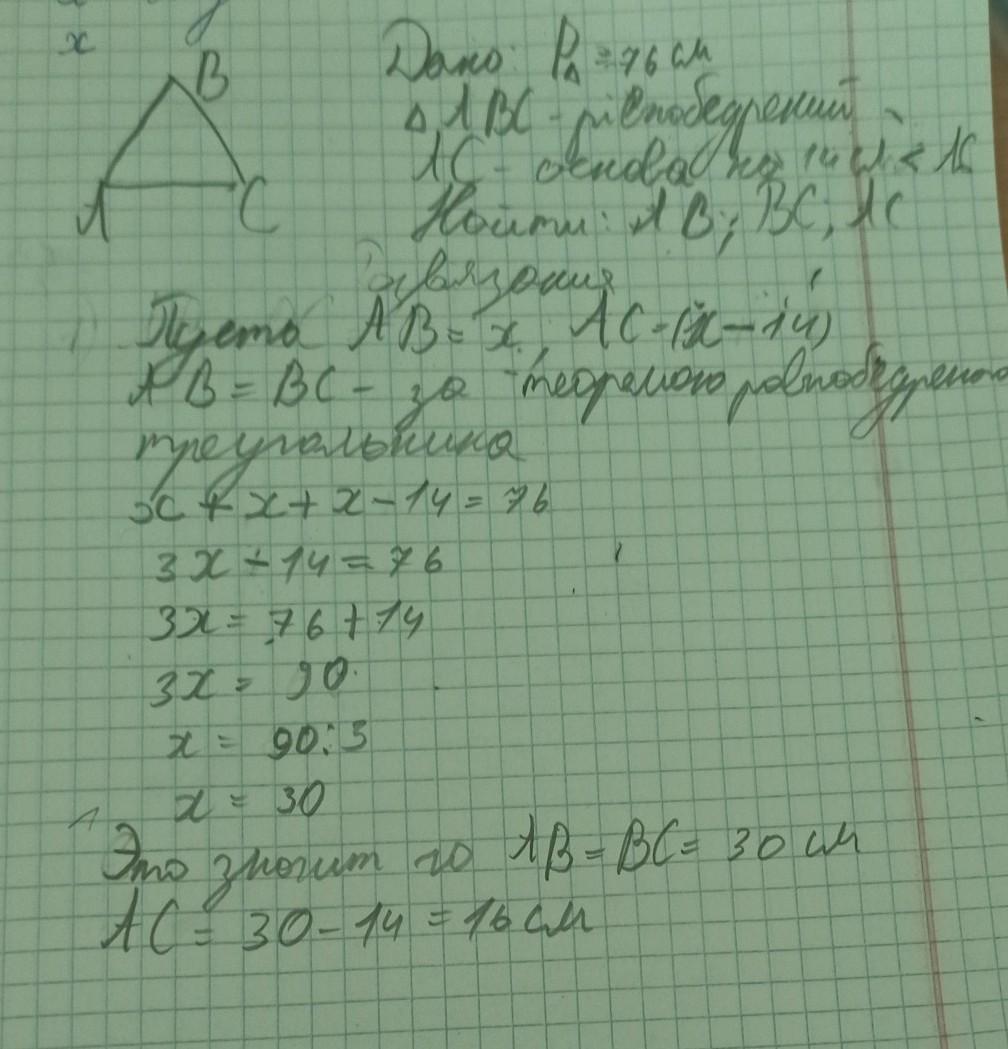 x
B
A
C
Дано: P△ = 76 см
△ ABC - рівнобедрений
AC - основа на 14 см <
Найти: AB; BC, AC
Пусть AB = x, AC - (x - 14)
AB = BC - за теоремою равнобедреного
треугальника
x + x + x - 14 = 76
3x - 14 = 76
3x = 76 + 14
3x = 90
x = 90 : 3
x = 30
Это значит AB = BC = 30 см
AC = 30 - 14 = 16 см